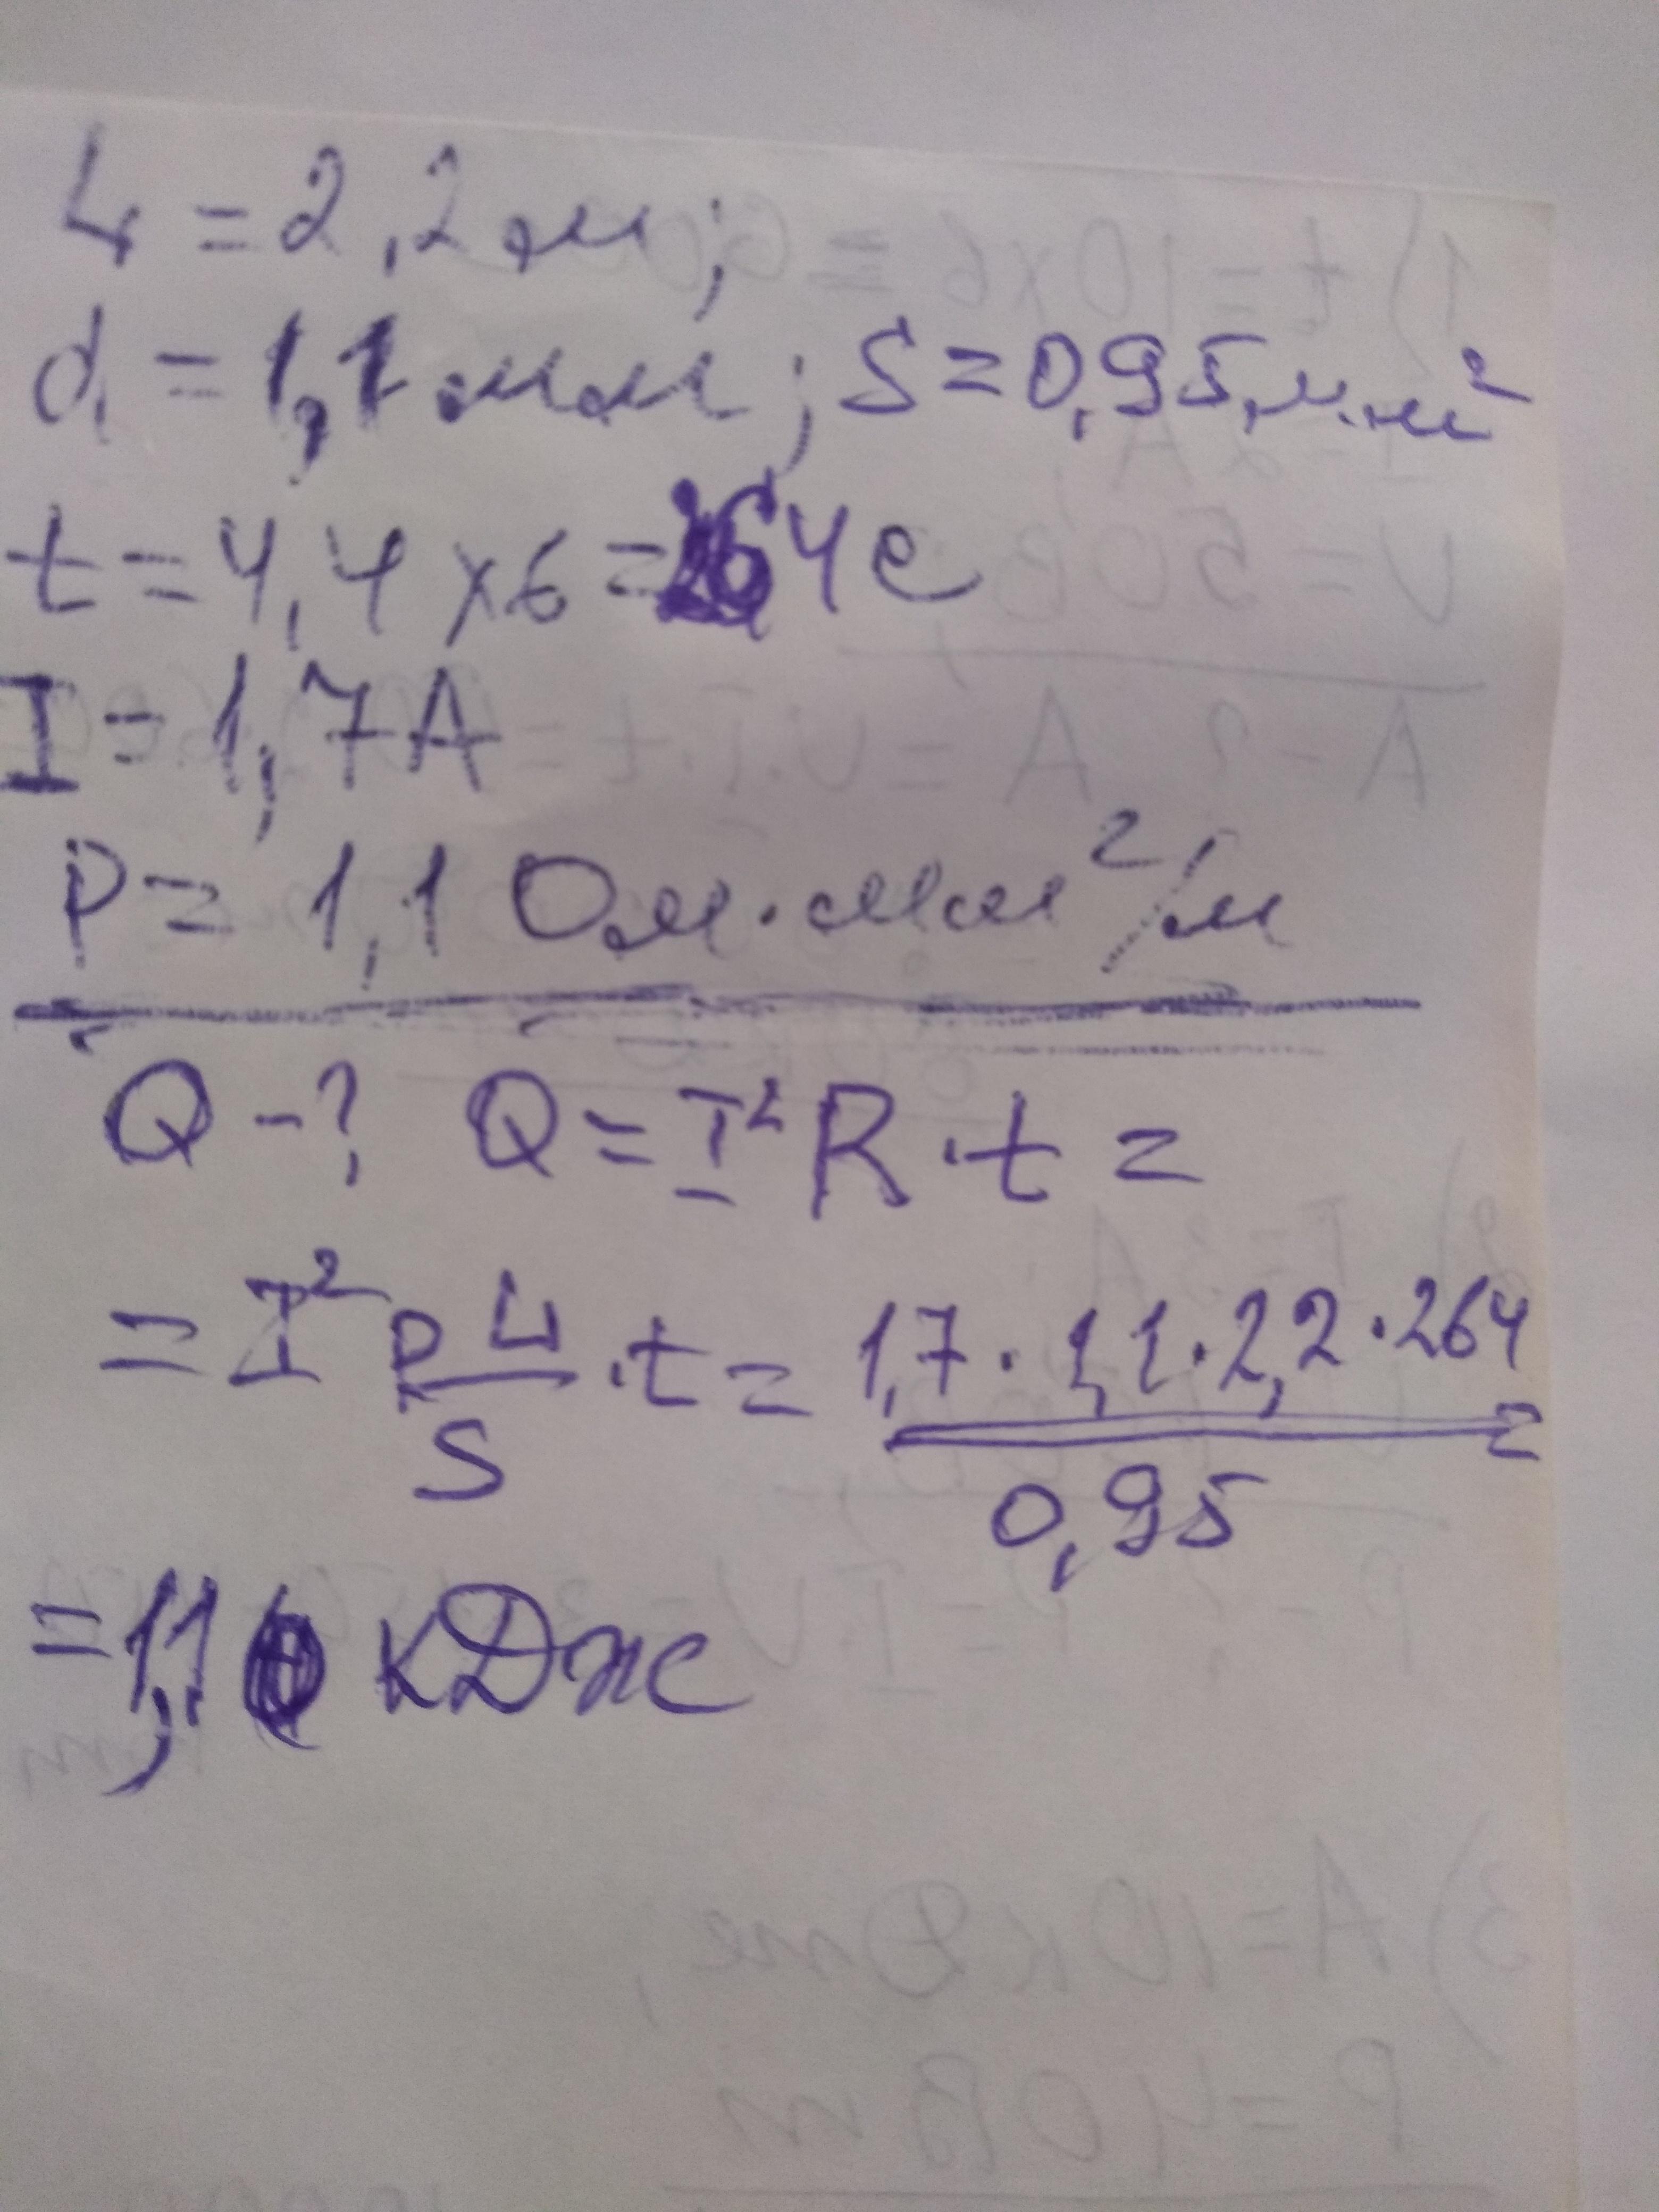 L = 2,2 м;
d = 1,1 мм; S = 0,95 мм²
t = 4,4 x 6 = 264 с
I = 1,7 А
P = 1,1 Ом·мм²/м
Q - ? Q = I² R · t =
= I² P L/S · t = 1,7 · 1,1 · 2,2 · 264 / 0,95 =
= 1,1 кДж